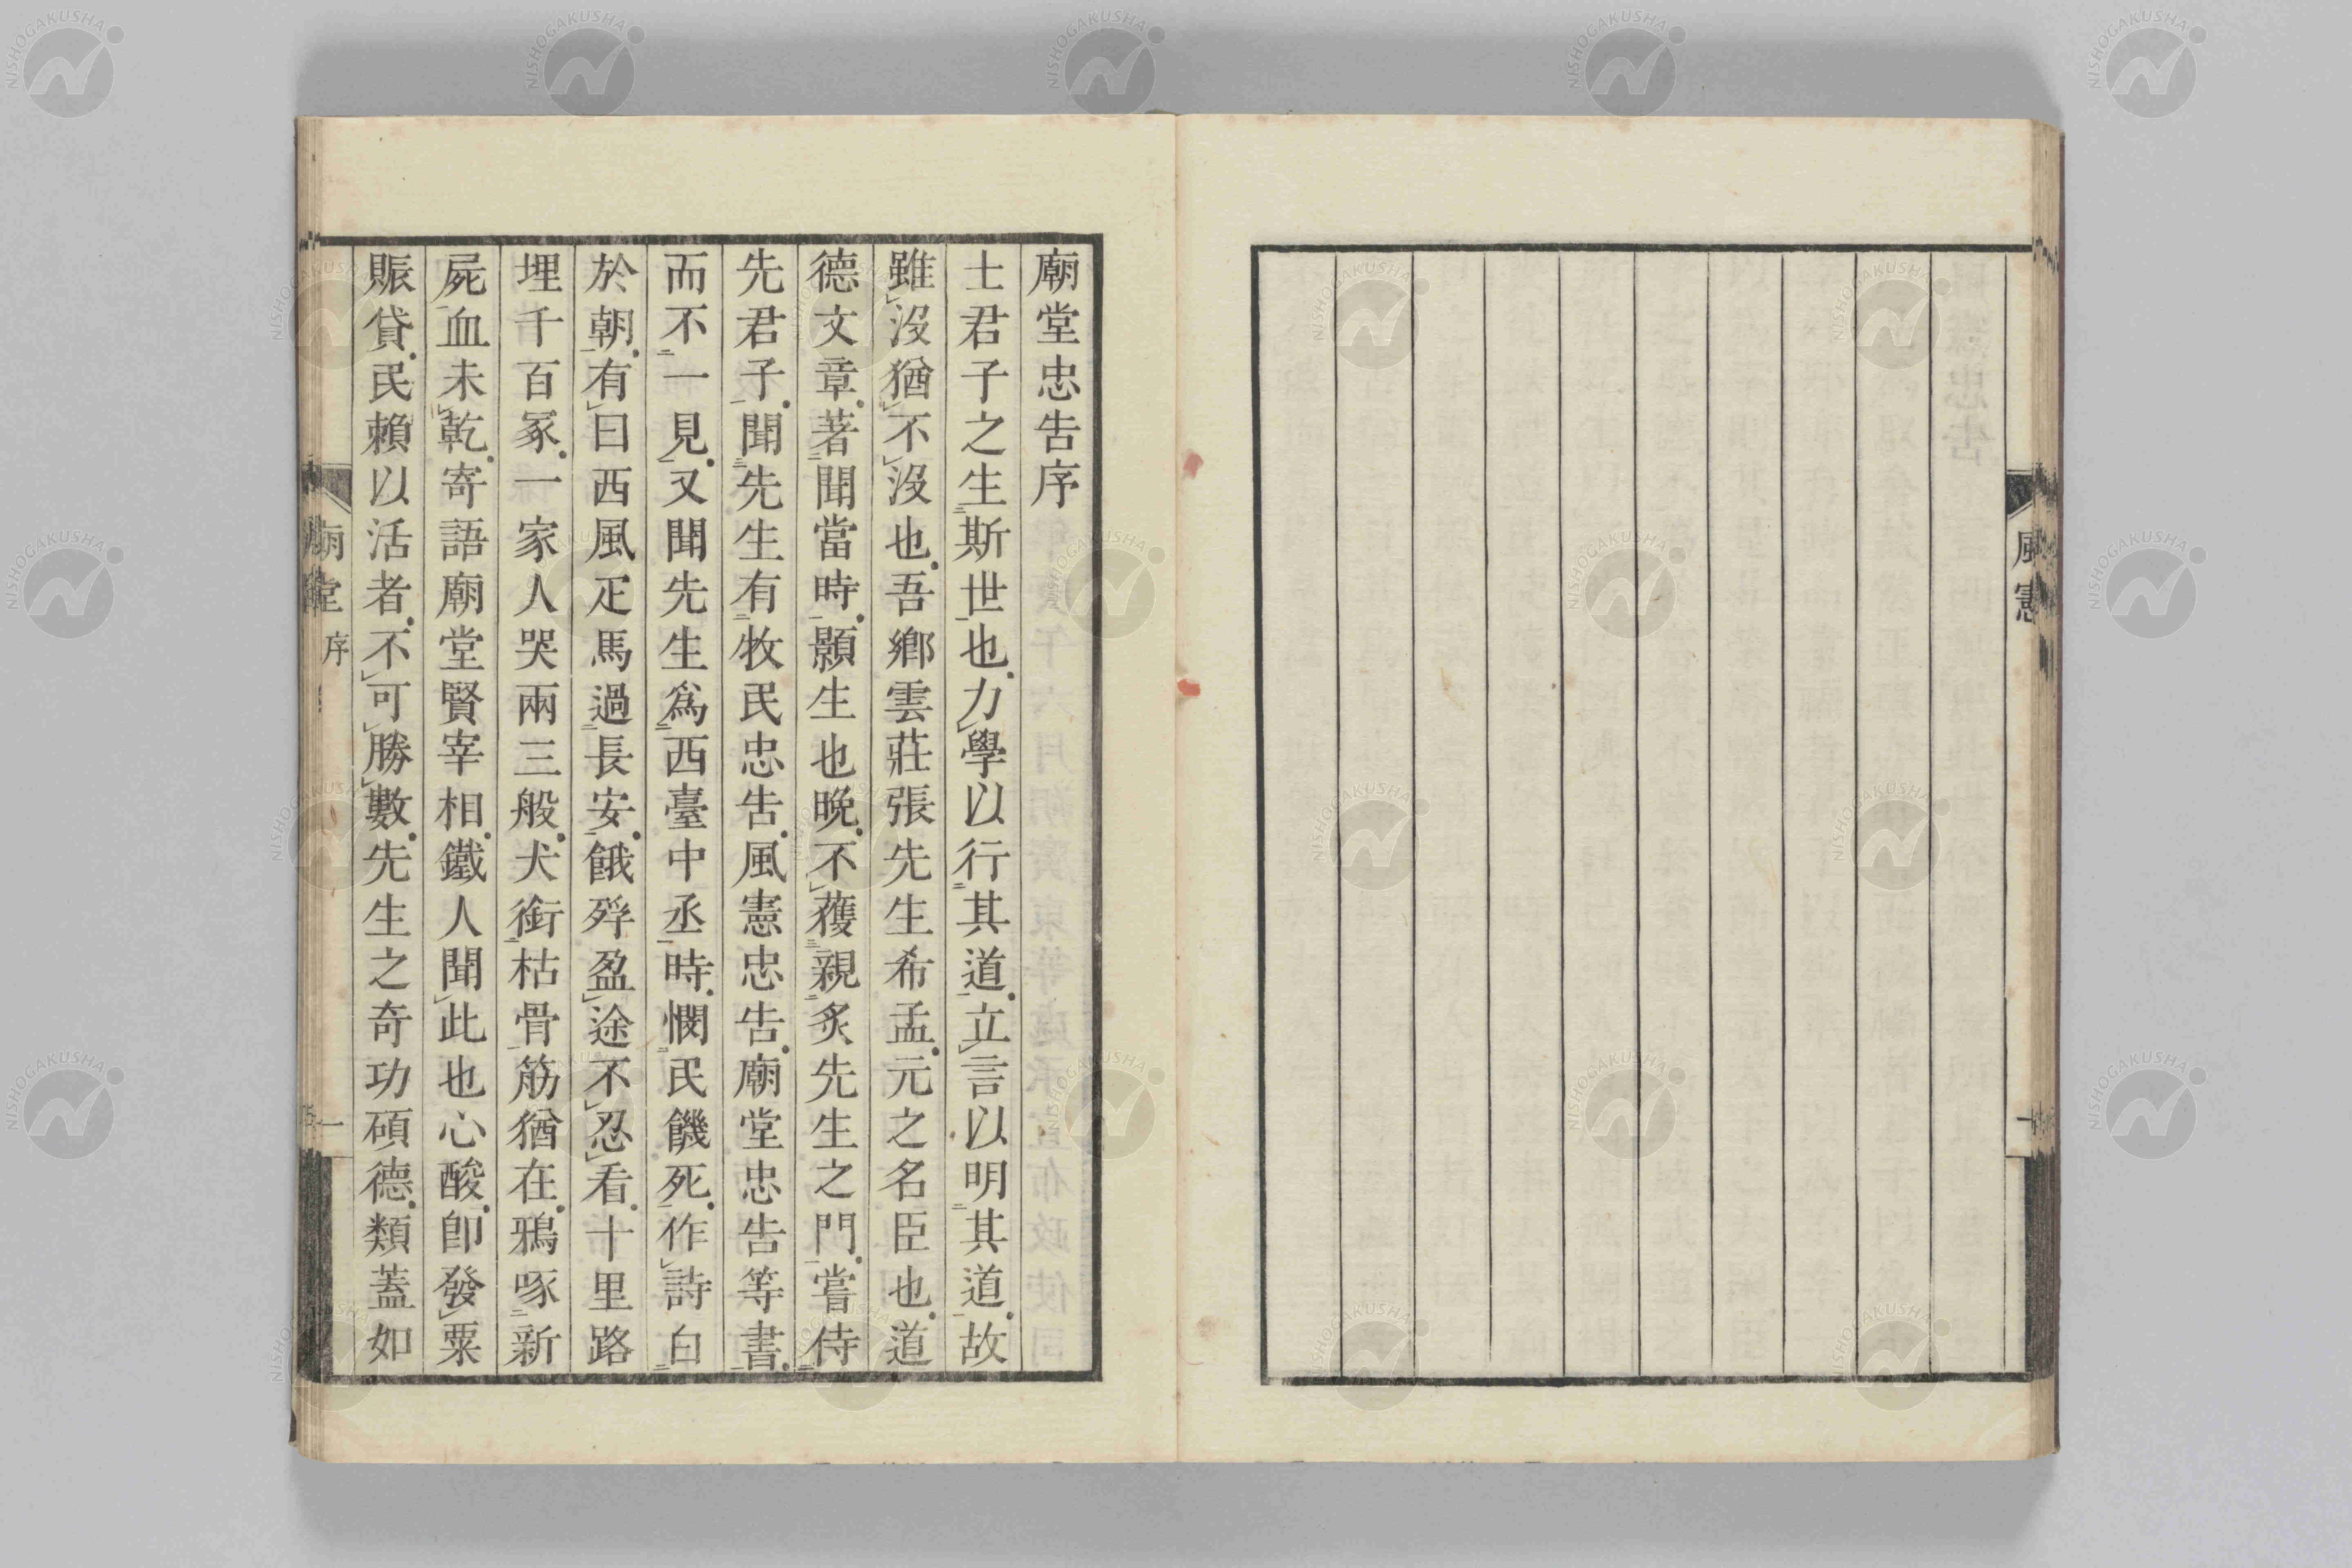 風憲
一
廟堂忠告序
士君子之生斯世也力學以行其道立言以明其道故
雖沒猶不沒也吾鄉雲莊張先生希孟元之名臣也道
德文章著聞當時顥生也晚不獲親炙先生之門嘗侍
先君子聞先生有牧民忠告風憲忠告廟堂忠告等書
而不一見又聞先生爲西臺中丞時憫民饑死作詩白
於朝有曰西風疋馬過長安餓殍盈途不忍看十里路
埋千百冢一家人哭兩三般犬銜枯骨筋猶在鴉啄新
屍血未乾寄語廟堂賢宰相鐵人聞此也心酸卽發粟
賑貸民賴以活者不可勝數先生之奇功碩德類蓋如
廟堂 序
一
NISHOGAKUSHA